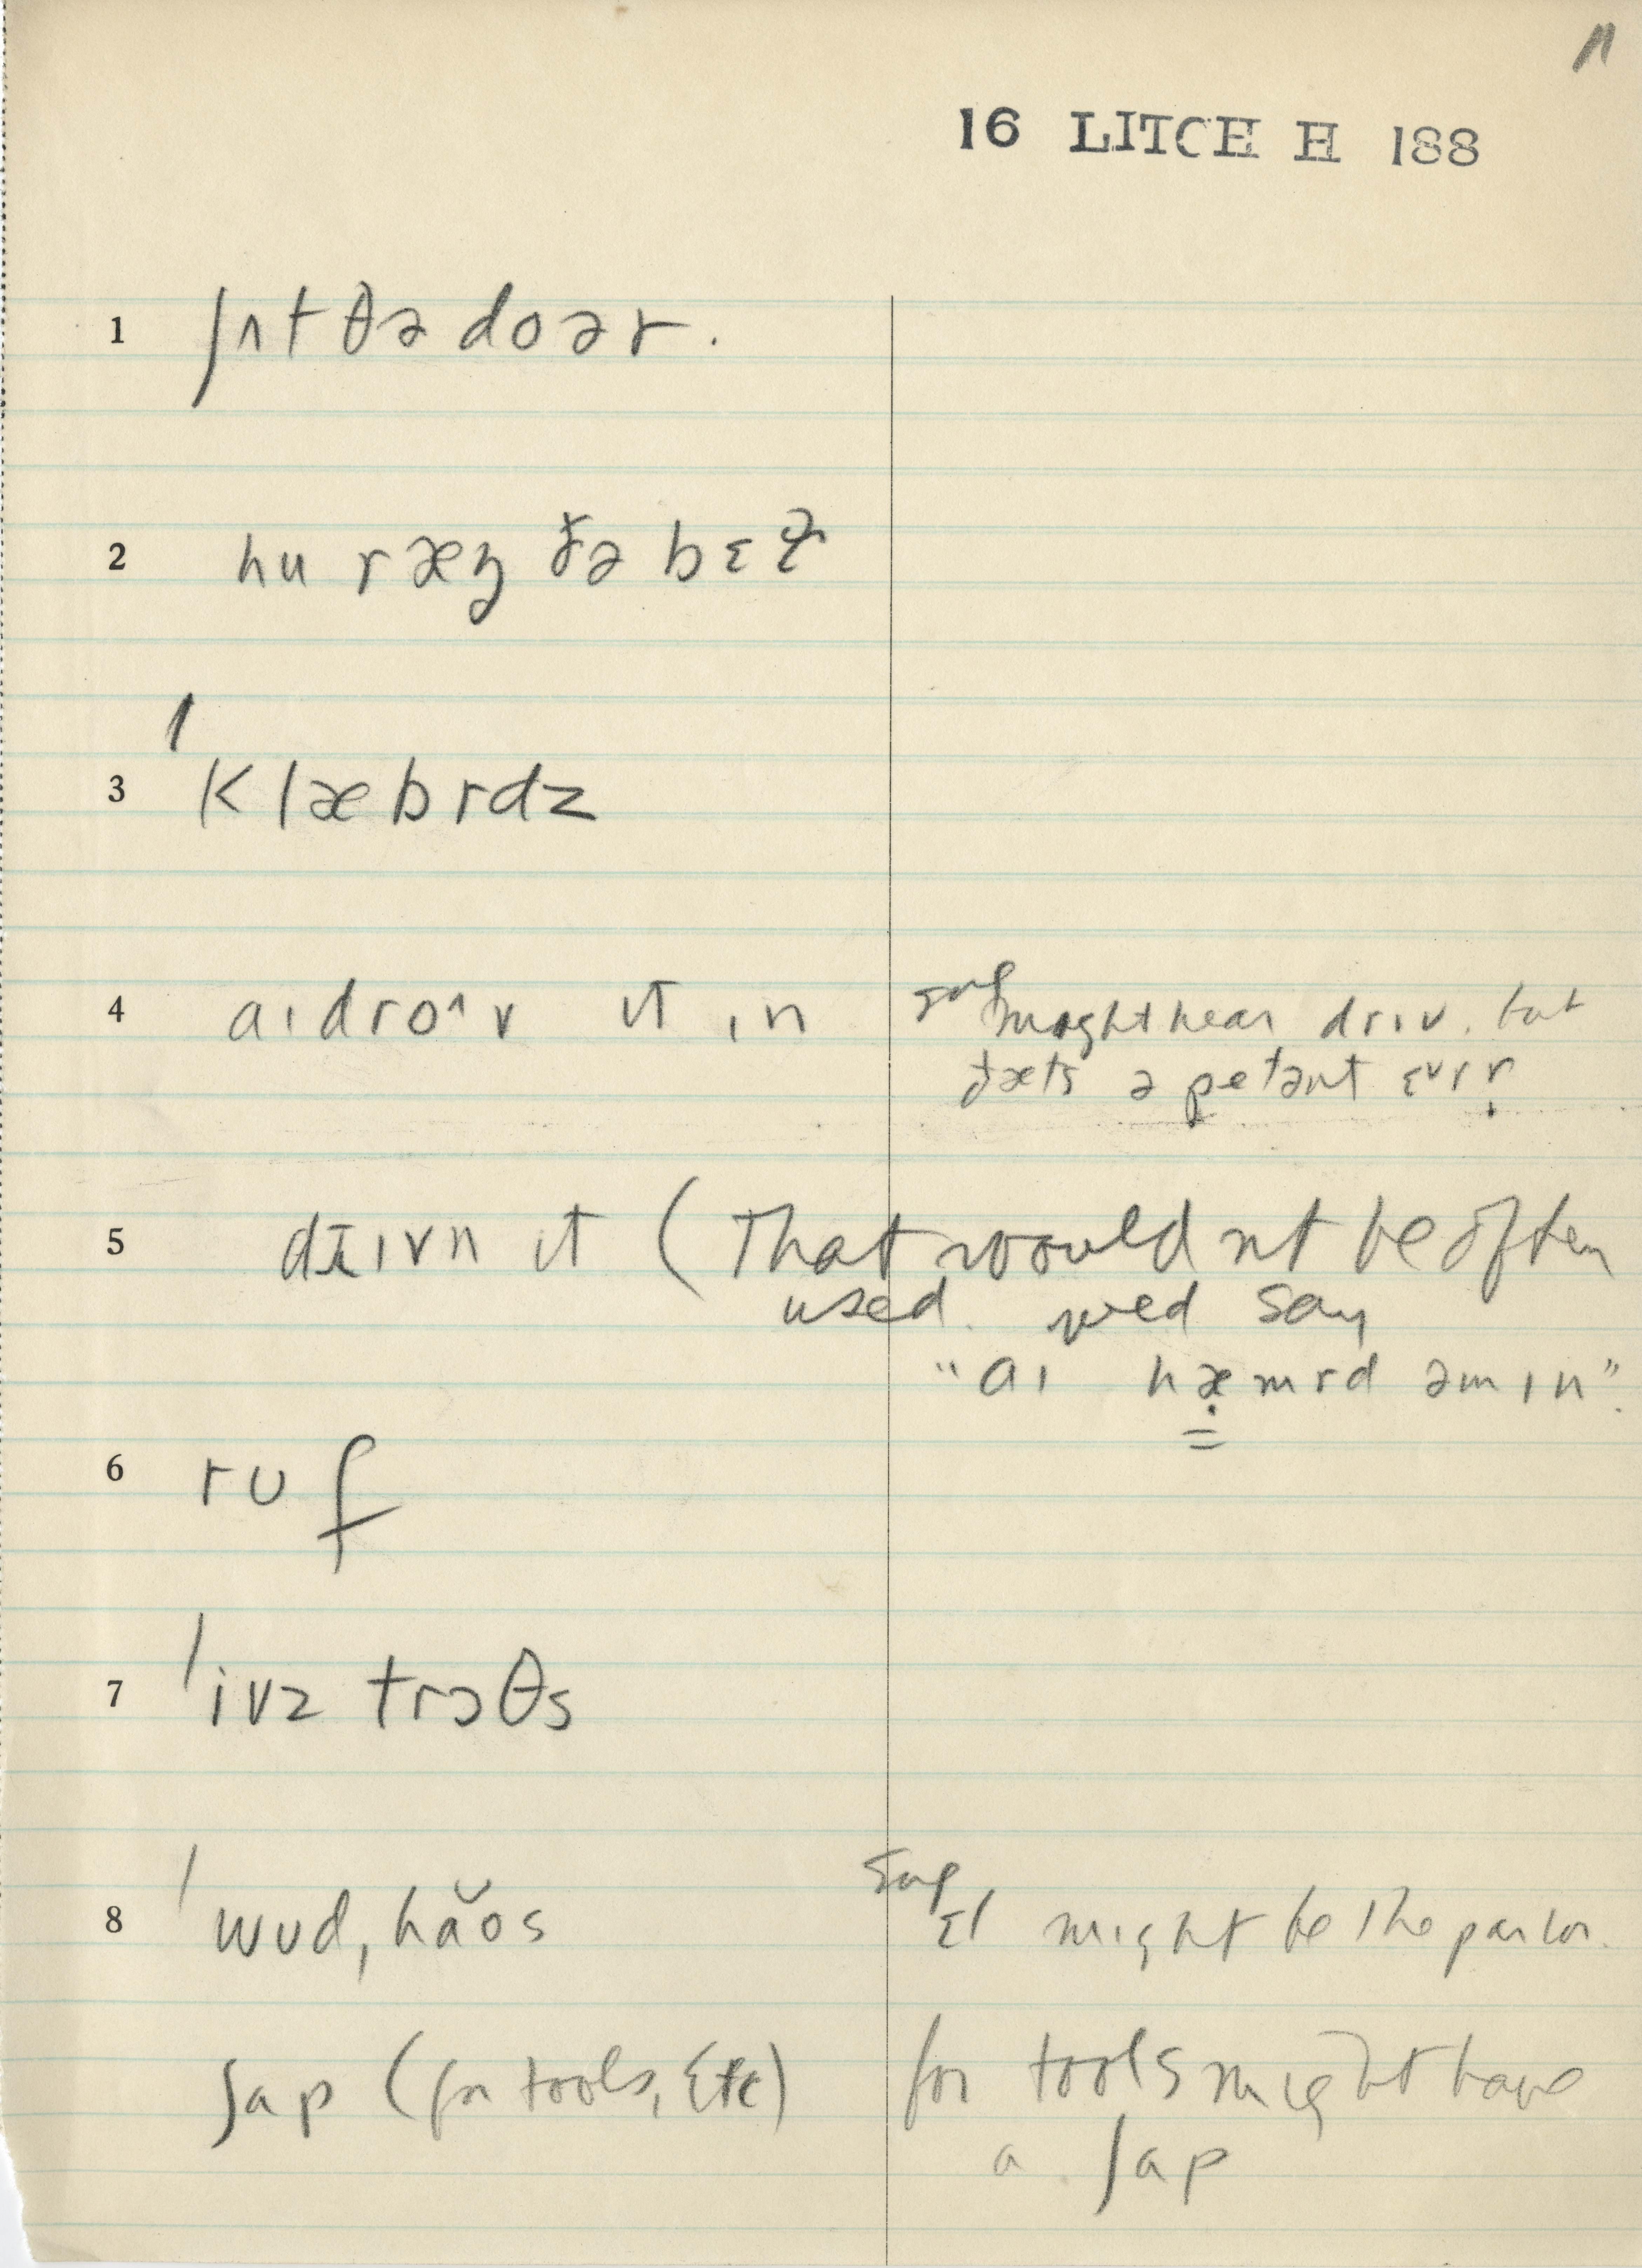 11
16 LITCH H 188
1 ʃʌt ðə doər.
2 hu ræŋ ðə bɛ
3 ˈklæbrdz
4 aɪdro^v ɪt ɪn
might hear drɪv. but
ðæts ə petənt ɛrr
5 ɪvn ɪt (That would nt be often
used. wed say
"aɪ hæmrd əm ɪn".
6 rʊf
7 ˈivz trɔθs
8 ˈwʊd, hăos
might be the parlor.
ʃap (for tools, Etc) for tools might have
a ʃap